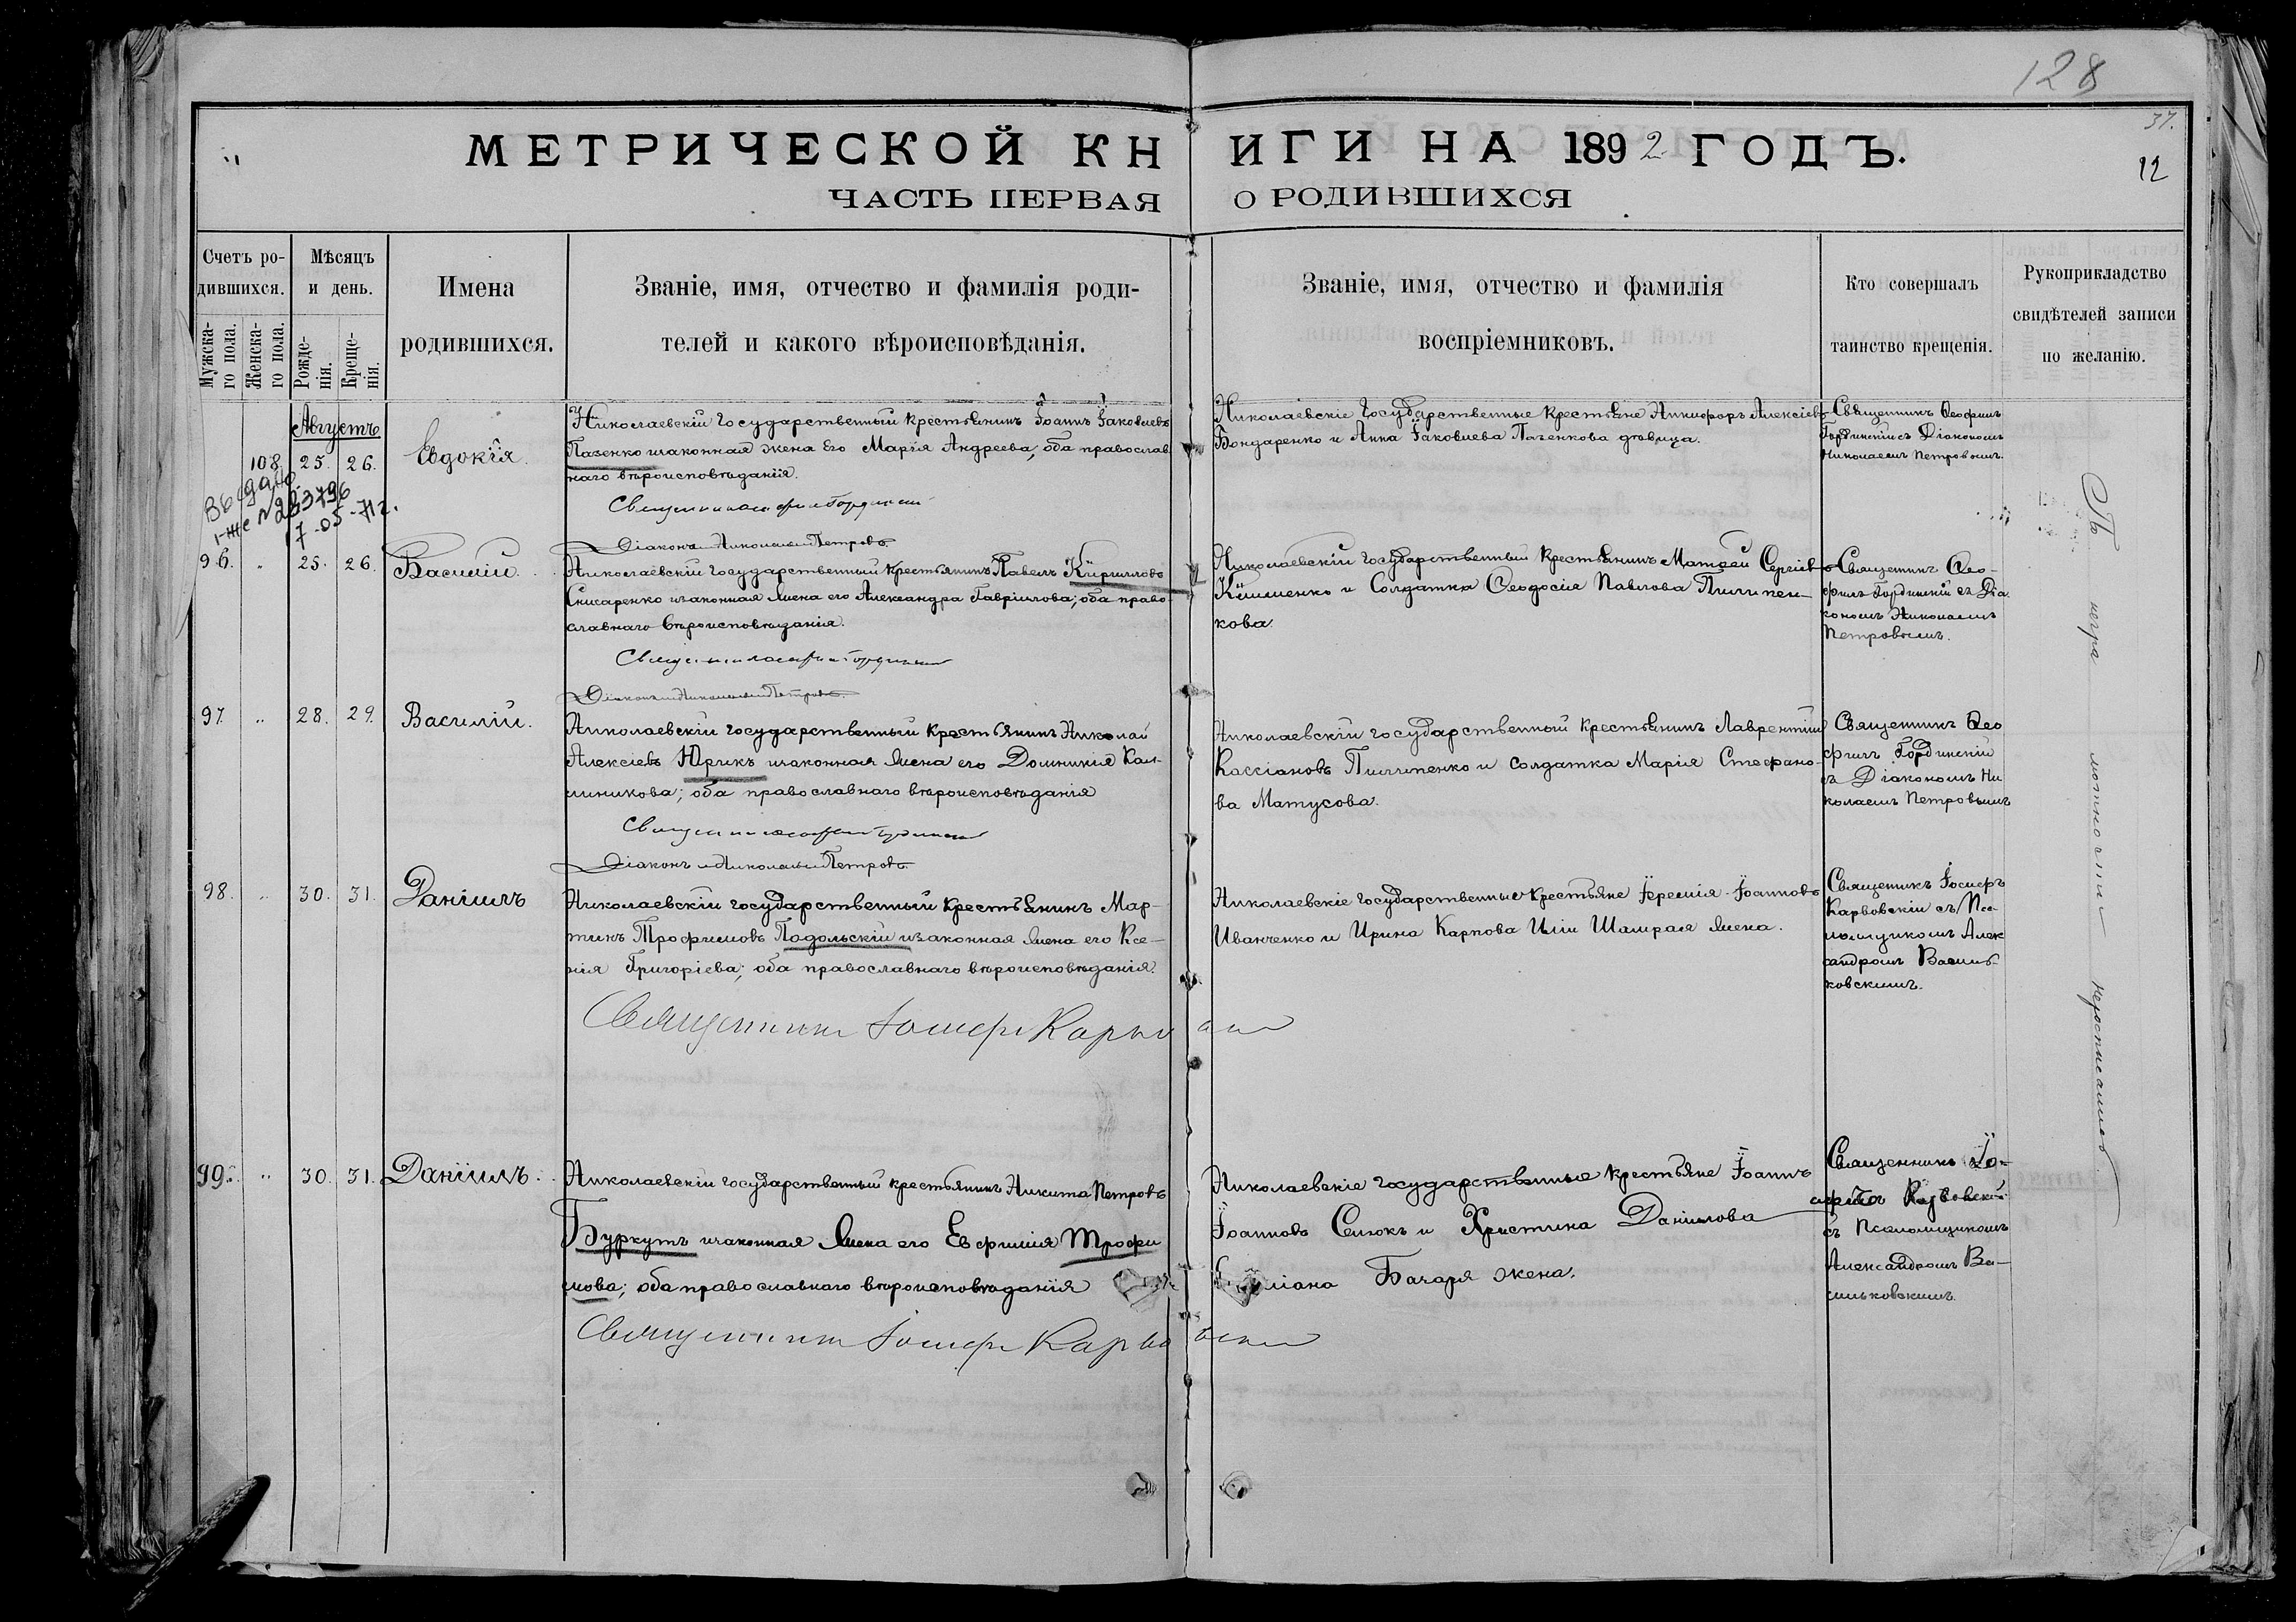 128
37.
12
МЕТРИЧЕСКОЙ КНИГИ НА 1892 ГОДЪ.
ЧАСТЬ ПЕРВАЯ О РОДИВШИХСЯ
Счетъ ро-
дившихся.
Мужска-
го пола.
Женска-
го пола.
Мѣсяцъ
и день.
Рожде-
нія.
Креще-
нія.
Имена
родившихся.
Званіе, имя, отчество и фамилія роди-
телей и какого вѣроисповѣданія.
Званіе, имя, отчество и фамилія
воспріемниковъ.
Кто совершалъ
таинство крещенія.
Рукоприкладство
свидѣтелей записи
по желанію.
Августъ
108. 25. 26.
Евдокія.
Николаевскій государственный крестьянинъ Іоаннъ Іаковлевъ
Пазенко и законная жена его Марія Андреева, оба православ-
наго вѣроисповѣданія.
Діаконъ Николай Петровъ.
Николаевскіе государственные крестьяне Никифоръ Алексіевъ
Бондаренко и Анна Іаковлева Пазенкова дѣвица.
Священникъ Ѳеофилъ
Гординскій съ Діакономъ
Николаемъ Петровымъ.
Выдано
7-05-71г.
96. " 25. 26.
Василій.
Николаевскій государственный крестьянинъ Павелъ Кирилловъ
Снисаренко и законная жена его Александра Гавріилова; оба право-
славнаго вѣроисповѣданія.
Діаконъ Николай Петровъ.
Николаевскій государственный крестьянинъ Матѳей Сергіевъ
Клименко и Солдатка Ѳеодосія Павлова Пилипен-
кова.
Священникъ Ѳео-
филъ Гординскій съ Діа-
кономъ Николаемъ
Петровымъ.
97. " 28. 29.
Василій.
Николаевскій государственный крестьянинъ Николай
Алексіевъ Юрикъ и законная жена его Домникія Кал-
линикова; оба православнаго вѣроисповѣданія
Діаконъ Николай Петровъ.
Николаевскій государственный крестьянинъ Лаврентій
Кассіановъ Пилипенко и солдатка Марія Стефано-
ва Матусова.
Священникъ Ѳео
филъ Гординскій
съ Діакономъ Ни
колаемъ Петровымъ
98. " 30. 31.
Даніилъ
Николаевскій государственный крестьянинъ Мар-
тинъ Трофимовъ Подольскій и законная жена его Ксе-
нія Григоріева; оба православнаго вѣроисповѣданія.
Священникъ Іосифъ Карвовскій
Николаевскіе государственные крестьяне Іеремія Іоанновъ
Иванченко и Ирина Карпова Иліи Шамрая жена.
Священикъ Іосифъ
Карвовскій съ Пса-
ломщикомъ Алек
сандромъ Василь-
ковскимъ.
99. " 30. 31.
Даніилъ.
Николаевскій государственный крестьянинъ Никита Петровъ
Буркутъ и законная жена его Евфимія Трофи
мова; оба православнаго вѣроисповѣданія
Священникъ Іосифъ Карвовскій
Николаевскіе государственные крестьяне Іоаннъ
Іоанновъ Сенюкъ и Христина Даніилова
Бачаря жена.
Священникъ Іо-
сифъ Карвовскій
съ Псаломщикомъ
Александромъ Ва-
сильковскимъ.